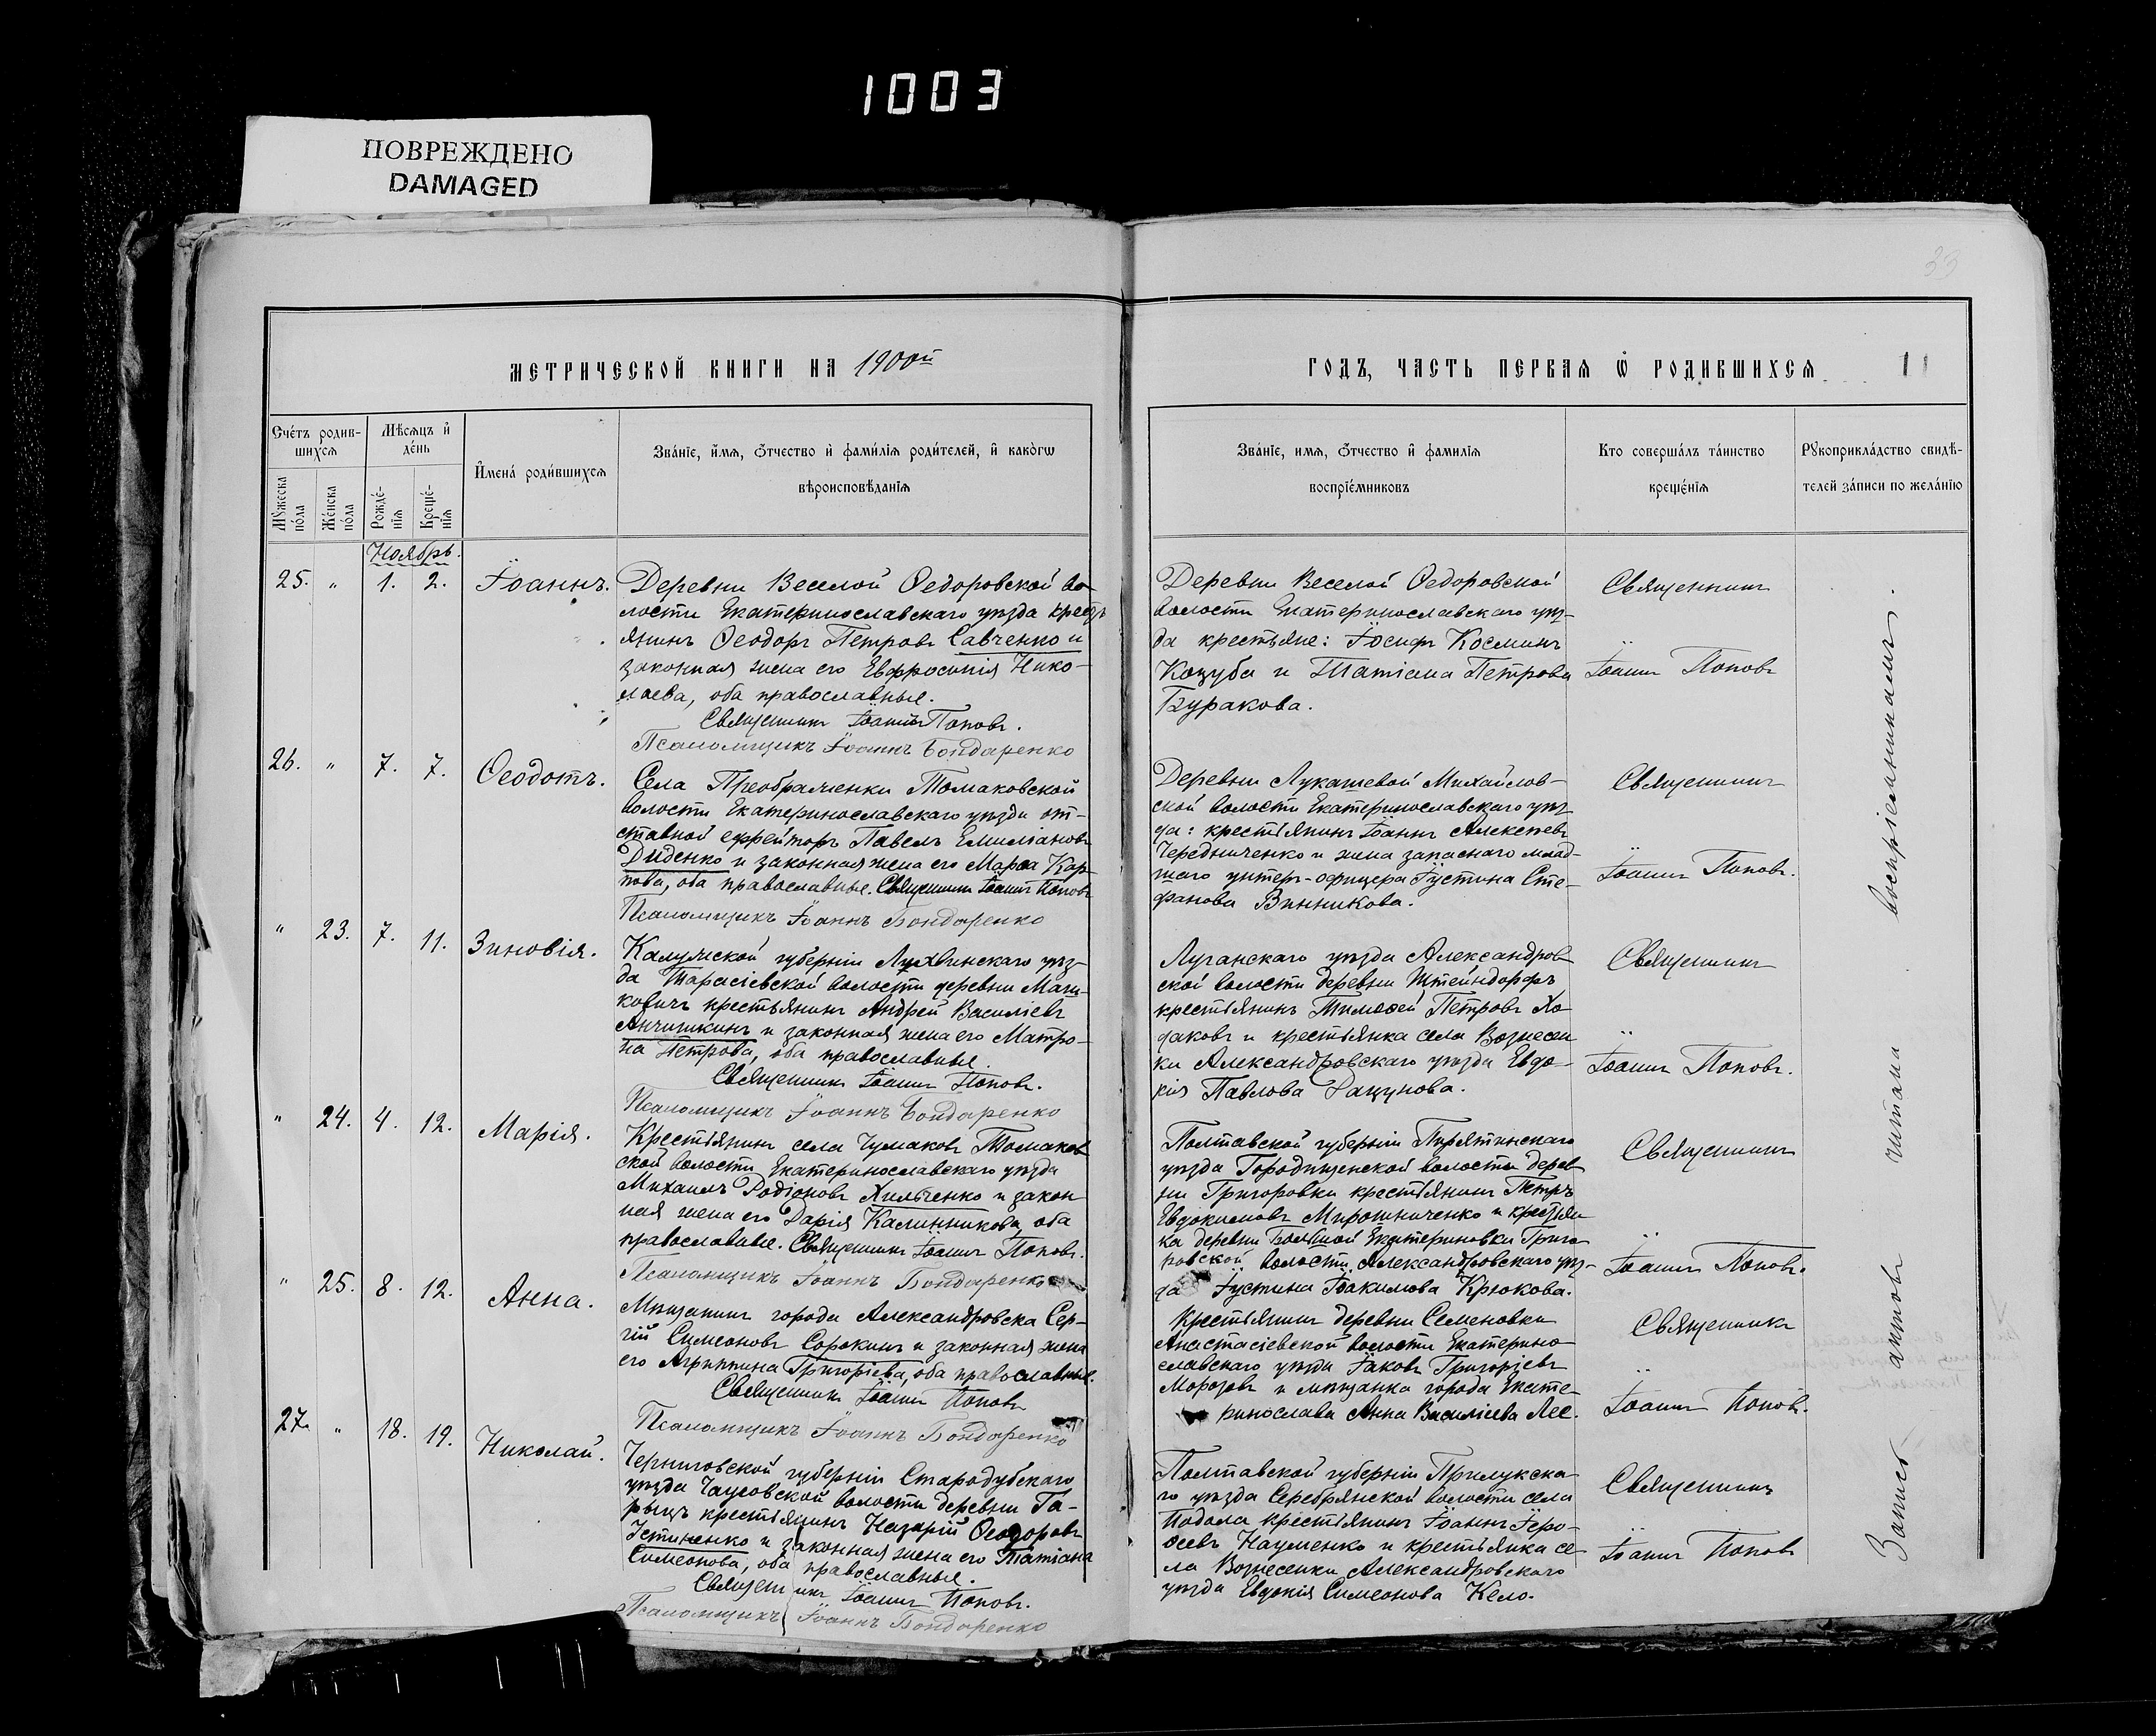 1003
ПОВРЕЖДЕНО
DAMAGED
33
МЕТРИЧЕСКОЙ КНИГИ НА 1900ый
ГОДЪ, ЧАСТЬ ПЕРВАЯ Ѡ РОДИВШИХСЯ
Счéтъ родившихсѧ
Мѣсѧцъ и҆ дéнь
И҆мена́ роди́вшихсѧ
Зва́нїе, и҆́мѧ, ѻ҆́тчество и҆ фами́лїѧ роди́телей, и҆ како́гѡ
вѣроисповѣ́данїѧ
Мꙋжеска по́ла
Же́нска по́ла
Рожде́нїѧ
Креще́нїѧ
Зва́нїе, имѧ, ѻ҆́тчество и҆ фамилїѧ
воспрїе́мниковъ
Кто соверша́лъ та́инство
креще́нїѧ
Рꙋкоприкла́дство свидѣ-
телей за́писи по жела́нїю
Ноябрь.
25. " 1. 2. Іоаннъ.
Деревни Веселой Ѳедоровской во-
лости Екатеринославскаго уѣзда крест-
янинъ Ѳеодоръ Петровъ Савченко и
законная жена его Евфросинія Нико-
лаева, оба православные.
Священникъ Іоаннъ Поповъ.
Псаломщикъ Іоаннъ Бондаренко
Деревни Веселой Ѳедоровской
волости Екатеринославскаго уѣз-
да крестьяне: Іосифъ Косминъ
Коцуба и Татіана Петрова
Буракова.
Священникъ
Іоаннъ Поповъ
26. " 7. 7. Ѳеодотъ.
Села Преображенки Томаковской
волости Екатеринославскаго уѣзда от-
ставной ефрейторъ Павелъ Емиліановъ
Диденко и законная жена его Марѳа Кар-
пова, оба православные. Священникъ Іоаннъ Поповъ
Псаломщикъ Іоаннъ Бондаренко
Деревни Лукашевой Михайлов-
ской волости Екатеринославскаго уѣз-
да: крестьянинъ Іоаннъ Алексѣевъ
Чередниченко и жена запаснаго млад-
шаго унтеръ-офицера Іустина Сте-
фанова Винникова.
Священникъ
Іоаннъ Поповъ.
" 23. 7. 11. Зиновія.
Калужской губерніи Лихвинскаго уѣз-
да Тарасіевской волости деревни
крестьянинъ Андрей Василіевъ
Анчишкинъ и законная жена его Матро-
на Петрова, оба православные.
Священникъ Іоаннъ Поповъ.
Псаломщикъ Іоаннъ Бондаренко
Луганскаго уѣзда Александров-
ской волости деревни Штейндорфъ
крестьянинъ Тимоѳей Петровъ Хо-
даковъ и крестьянка села Вознесен-
ки Александровскаго уѣзда Евдо-
кія Павлова Рацунова.
Священникъ
Іоаннъ Поповъ.
" 24. 4. 12. Марія.
Крестьянинъ села Чумаковъ Томаков-
ской волости Екатеринославскаго уѣзда
Михаилъ Родіоновъ Хильченко и закон-
ная жена его Дарія Калинникова, оба
православные. Священникъ Іоаннъ Поповъ.
Псаломщикъ Іоаннъ Бондаренко
Полтавской губерніи Пирятинскаго
уѣзда Городищенской волости дерев-
ни Григоровки крестьянинъ Петръ
Евдокимовъ Мирошниченко и крестьян-
ка деревни Большой Екатериновки Григо-
ровской волости Александровскаго уѣз-
да Іустина Іоакимова Крюкова.
Священникъ
Іоаннъ Поповъ.
" 25. 8. 12. Анна.
Мѣщанинъ города Александровска Сер-
гій Симеоновъ Сорокинъ и законная жена
его Агриппина Григоріева, оба православные.
Священникъ Іоаннъ Поповъ
Псаломщикъ Іоаннъ Бондаренко
Крестьянинъ деревни Семеновки
Анастасіевской волости Екатерино-
славскаго уѣзда Іаковъ Григоріевъ
Морозовъ и мѣщанка города Екате-
ринослава Анна Василіева Лее.
Священникъ
Іоаннъ Поповъ.
27. " 18. 19. Николай.
Черниговской губерніи Стародубскаго
уѣзда Чаусовской волости деревни Га-
рыцъ крестьянинъ Назарій Ѳеодоровъ
Устименко и законная жена его Татіана
Симеонова, оба православные.
Священникъ Іоаннъ Поповъ.
Псаломщикъ Іоаннъ Бондаренко
Полтавской губерніи Прилукска-
го уѣзда Серебрянской волости села
Подола крестьянинъ Іоаннъ Іеро-
ѳеевъ Науменко и крестьянка се-
ла Вознесенки Александровскаго
уѣзда Евдокія Симеонова Кело.
Священникъ
Іоаннъ Поповъ
Запись актовъ читана воспріемникамъ.